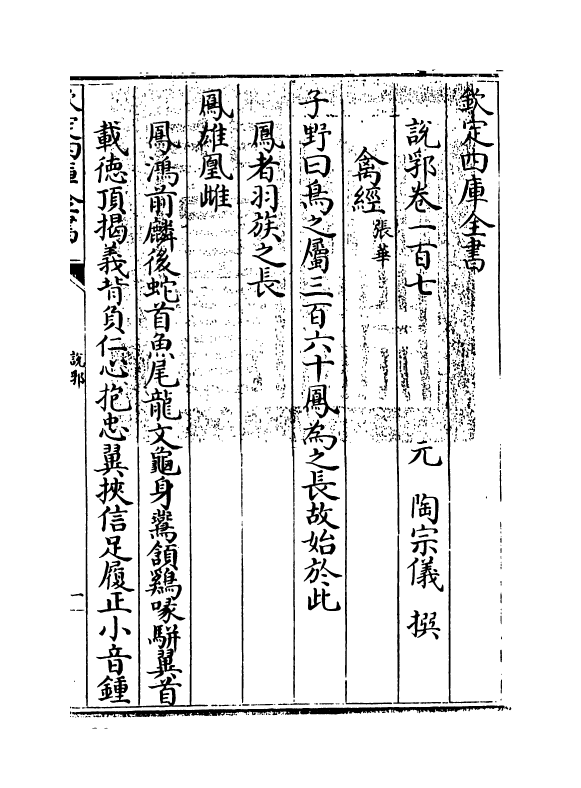 欽定四庫全書
說郛卷一百七 元 陶宗儀 撰
禽經 張華
子野曰鳥之屬三百六十鳳為之長故始於此
鳳者羽族之長
鳳雄凰雌
鳳鴻前麟後蛇首魚尾龍文龜身鷰頷鷄喙駢翼首
載德頂揭義背負仁心抱忠翼挾信足履正小音鍾
說郛
一